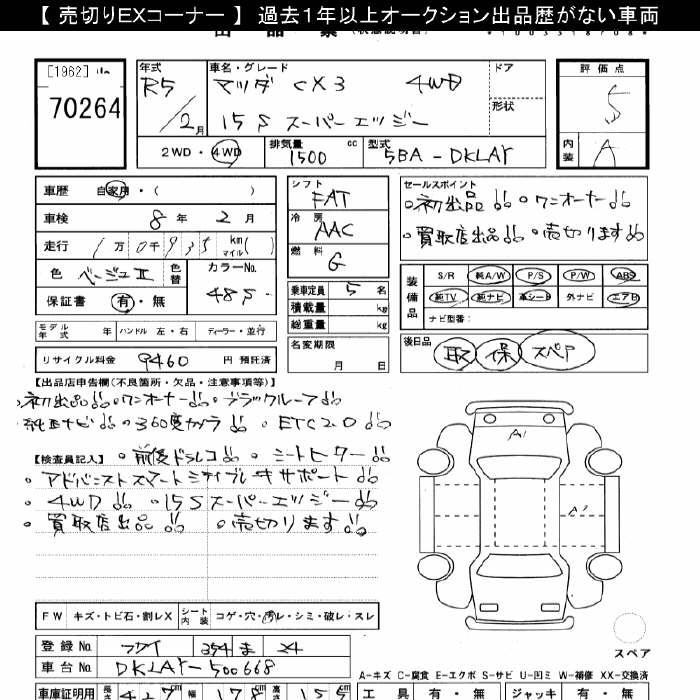 【 売切りEXコーナー 】 過去1年以上オークション出品歴がない車両
[1962]
70264
年式
R5
/2月
車名・グレード
マツダ CX3 4WD
15S スーパーエッジー
ドア
形状
評価点
5
内装
A
2WD・4WD
排気量
1500 cc
型式
5BA-DKLAY
車歴 自家用・( )
車検 8 年 2 月
走行 1万0千935 km マイル( )
色 ベージュⅡ 色替 カラーNo. 48S
保証書 有・無
モデル年式 年 ハンドル 左・右 ディーラー・並行
リサイクル料金 9460 円 預託済
シフト
FAT
冷房
AAC
燃料
G
乗車定員 5 名
積載量 kg
総重量 kg
名変期限
月 日
セールスポイント
・初出品!! ・ワンオーナー!!
・買取店出品!! ・売切ります!!
装備品
S/R 純A/W P/S P/W ABS
純TV 純ナビ 革シート 外ナビ エアB
ナビ型番:
後日品
取 保 スペア
【出品店申告欄(不良箇所・欠品・注意事項等)】
・初出品!! ・ワンオーナー!! ・ブラックルーフ!!
・純正ナビ!! ・360度カメラ!! ・ETC2.0!!
【検査員記入】 ・前後ドラレコ!! ・シートヒーター!!
・アドバンストスマートシティブレーキサポート!!
・4WD!! ・15Sスーパーエッジー!!
・買取店出品!! ・売切ります!!
A1
A1
スペア
FW キズ・トビ石・割レX シート内装 コゲ・穴・汚レ・シミ・破レ・スレ
登録No. 354 ま 24
車台No. DKLAY-500668
A-キズ C-腐食 E-エクボ S-サビ U-凹ミ W-補修 XX-交換済
車庫証明用 長さ 427 cm 幅 178 cm 高さ 155
工具 有・無 ジャッキ 有・無